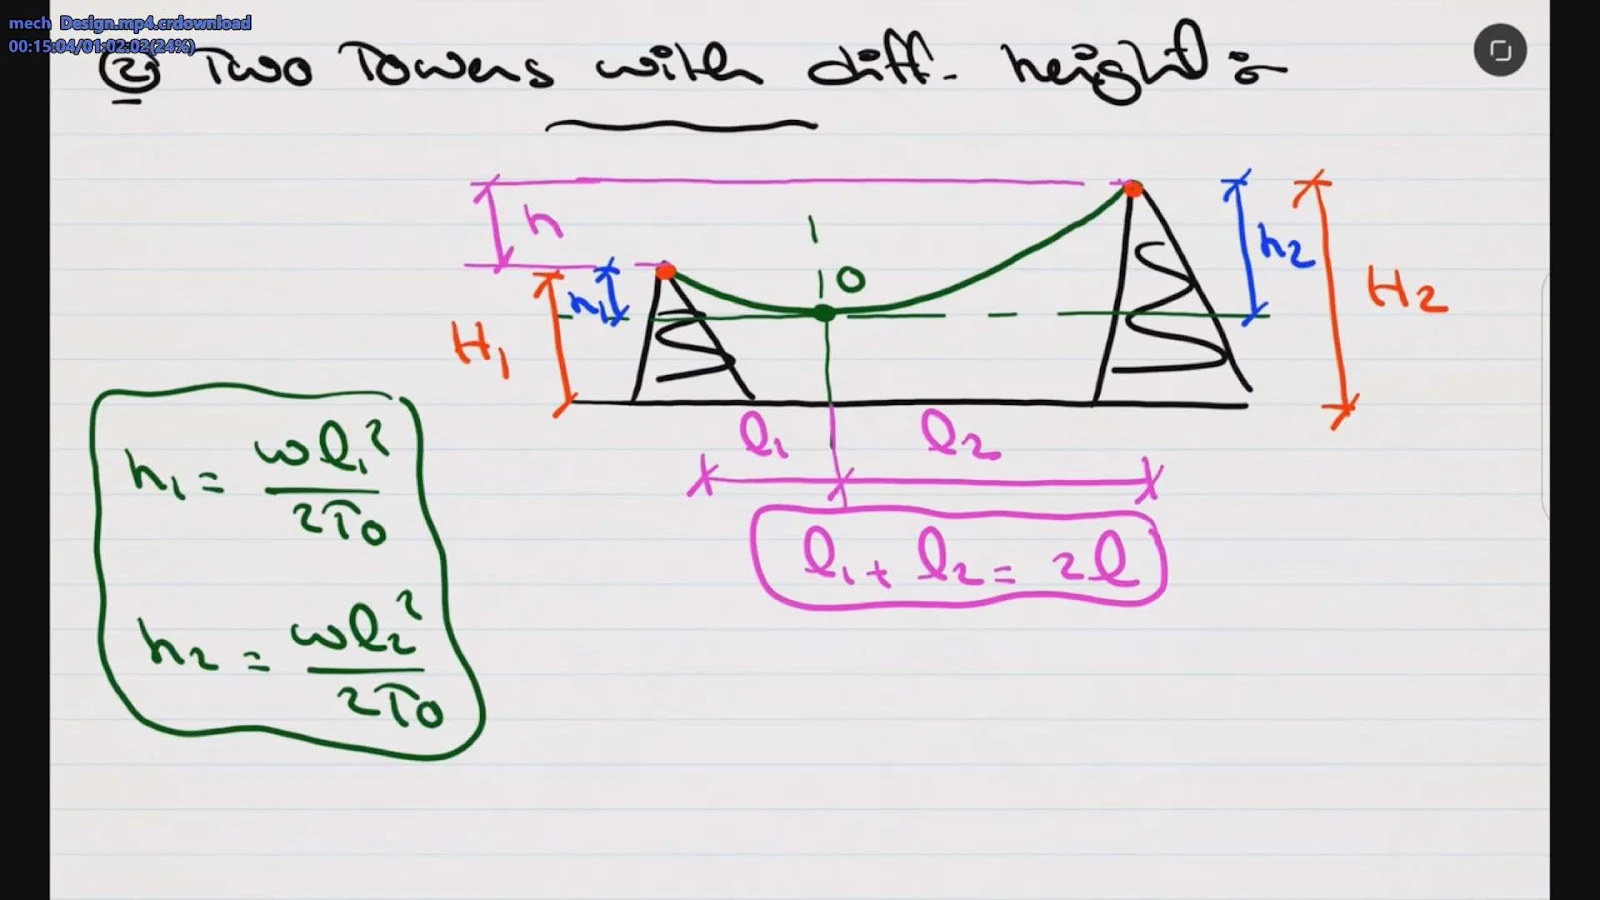 mech Design.mp4.crdownload
00:15:04/01:02:02(24%)
② Two Towers with diff. height :-
h
O
h₂
H₂
h₁
H₁
l₁
l₂
h₁ = wl₁² / 2T₀
l₁ + l₂ = 2l
h₂ = wl₂² / 2T₀